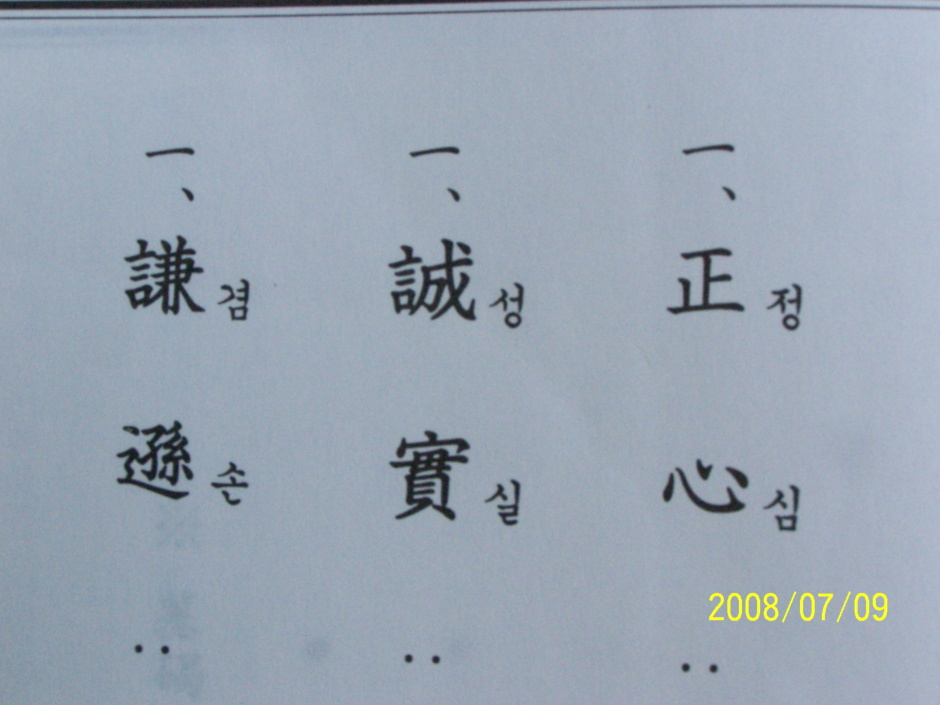 一、正정心심 :
一、誠성實실 :
一、謙겸遜손 :
2008/07/09